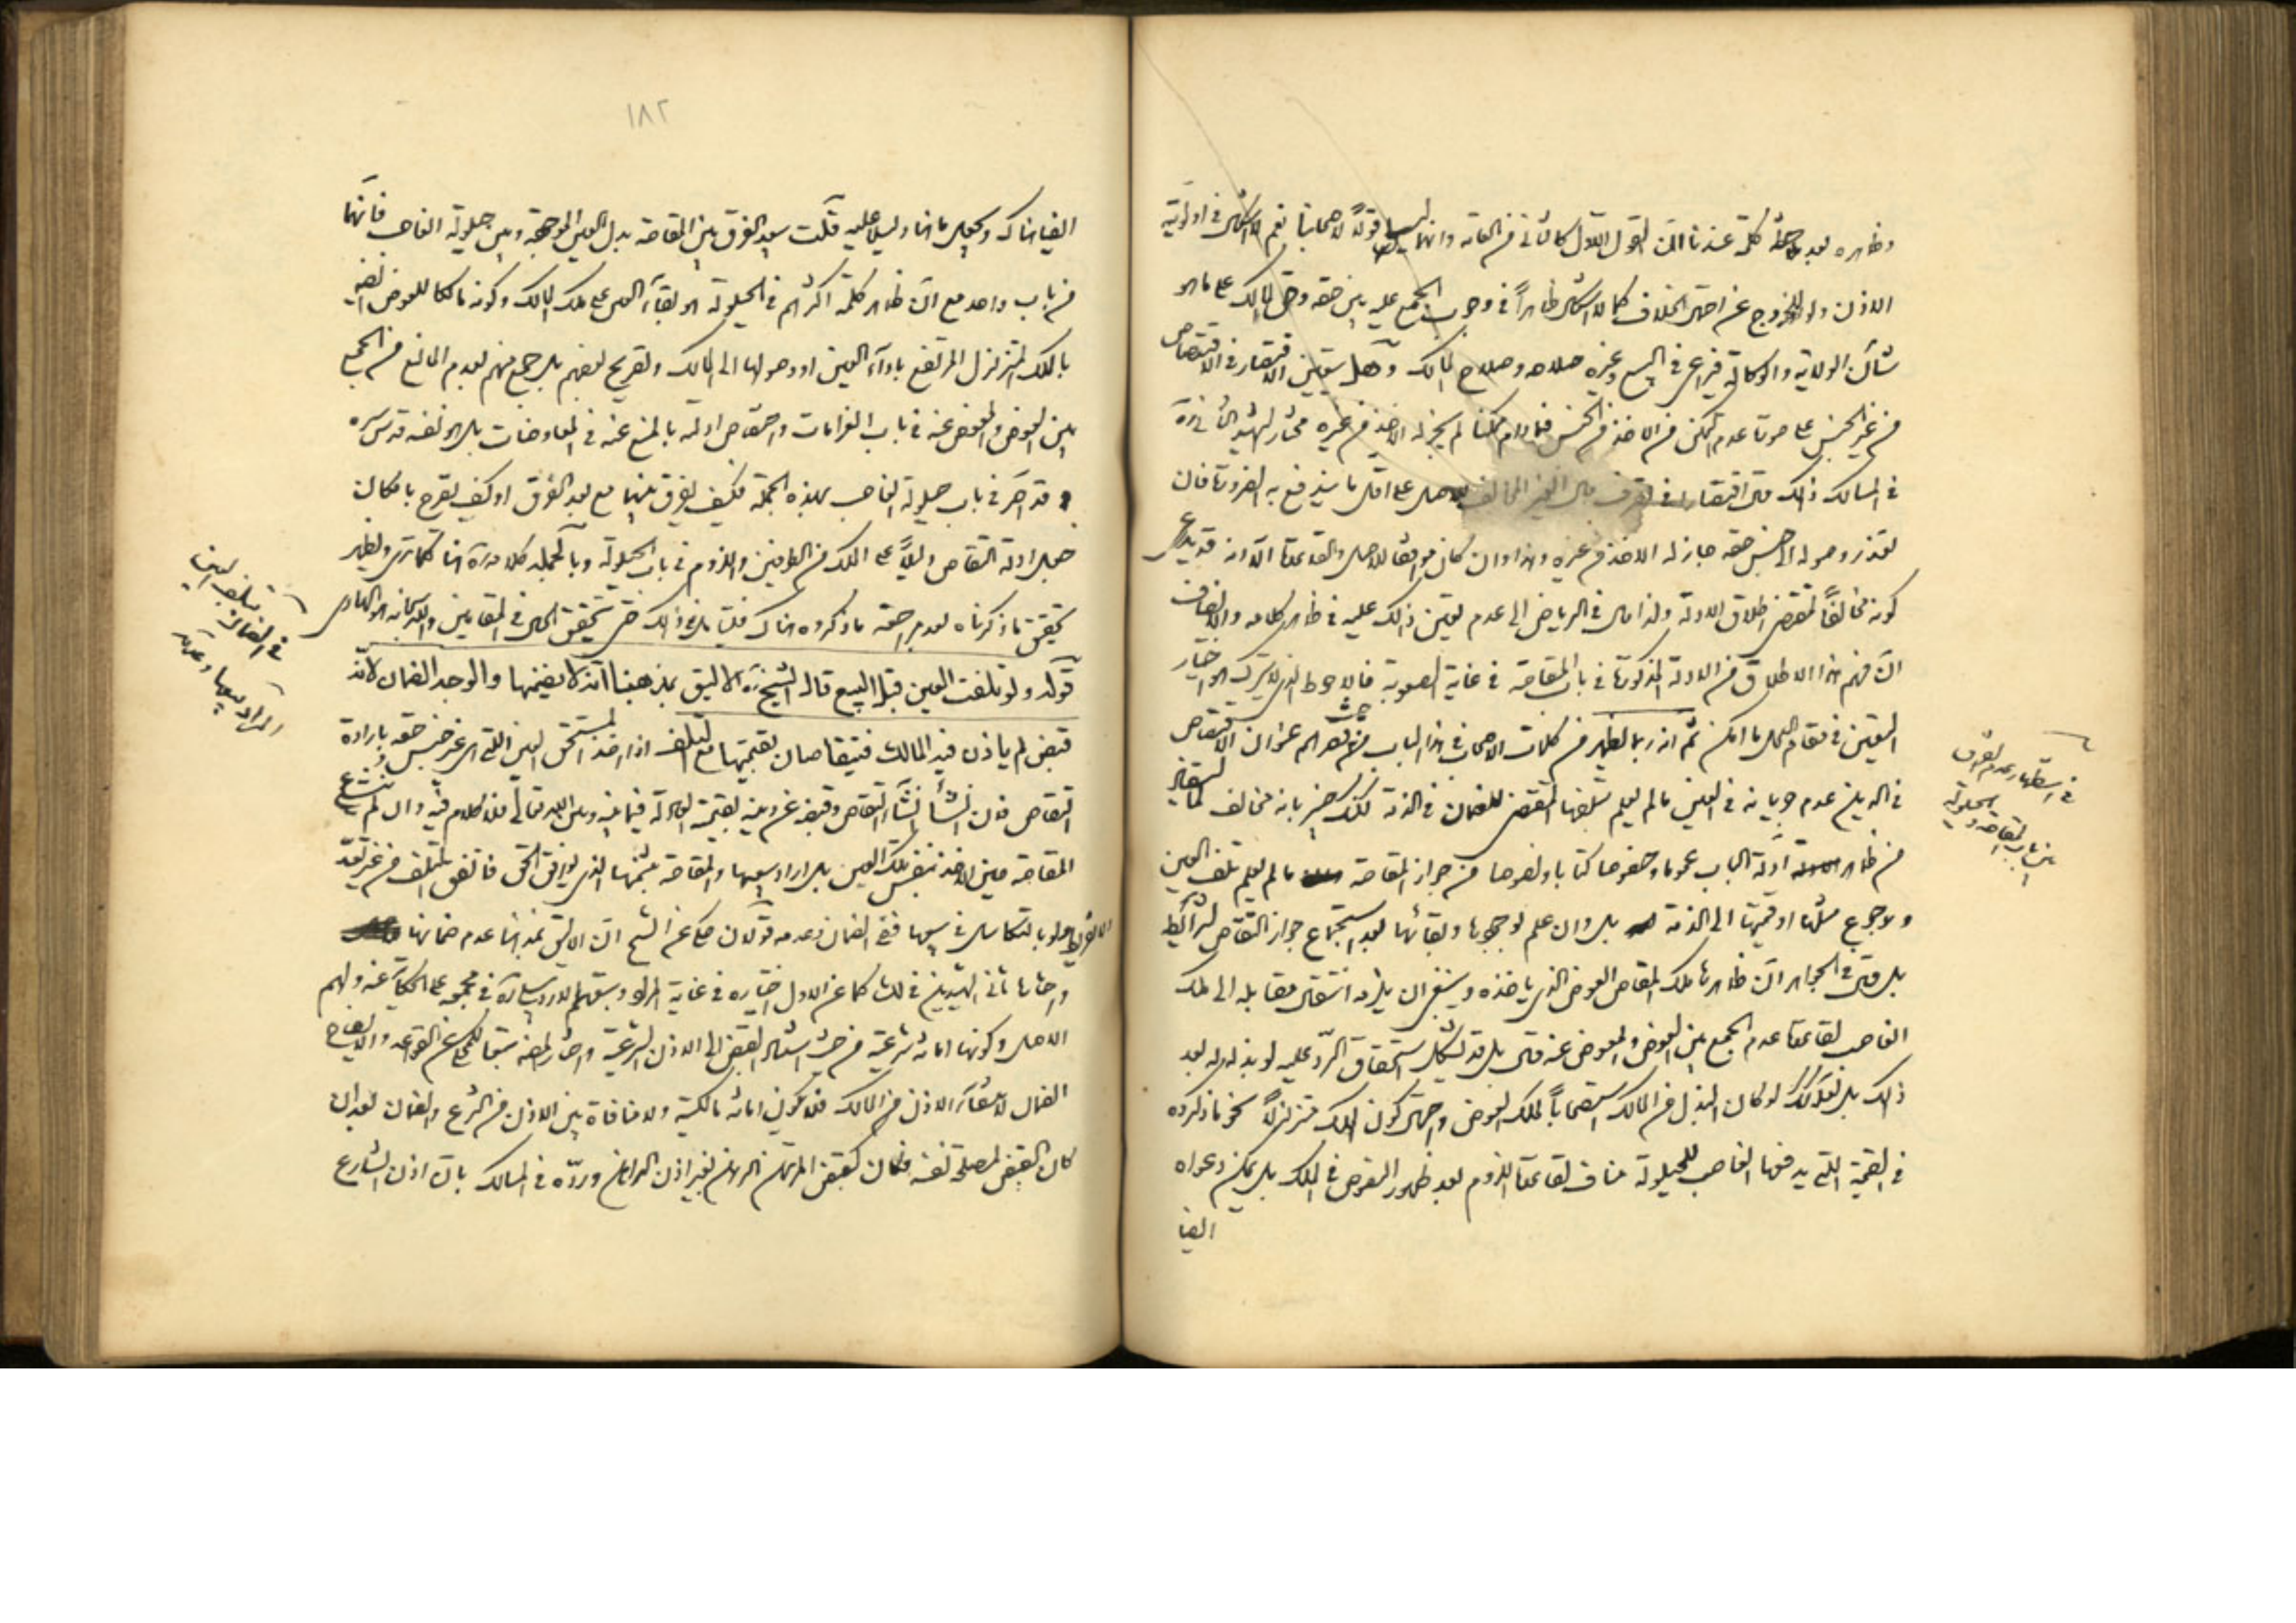 وظاهره بعد كلمة عندنا ان القول الاول كالثانى فى الغاية وانهما ليسا قولا لاصحابنا نعم لا اشكال فى اولوية
الاذن ولو للخروج عن احتمال الخلاف كما لا اشكال ظاهراً فى وجوب الجمع عليه بين حقه وحق المالك على ما هو
شأن الولاية والوكالة فيراعى فى البيع وغيره صلاحه وصلاح المالك وهل يتعين الاقتصار فى الاقتصاص
من غير الجنس على صورة عدم التمكن من الاخذ من الجنس فمادام ممكنا لم يجز له الاخذ من غيره مختار الشهيد الثانى ره
فى المسالك ذلك قال اقتصارا فى التصرف فى مال الغير المخالف للاصل على اقل ما يندفع به الضرورة فان
تعذر وصوله الى جنس حقه جاز له الاخذ من غيره وهذا وان كان موافقا للاصل والقاعدة الا انه قد يدعى
كونه مخالفاً لمقتضى اطلاق الادلة ولذا مال فى الرياض الى عدم تعين ذلك عليه فى ظاهر كلامه والانصاف
ان فهم هذا الاطلاق من الادلة المذكورة فى باب المقاصة فى غاية الصعوبة فالاحوط الذى لا يترك هو اختيار
المتعين فى مقام العمل ما امكن ثم انه ربما يظهر من كلمات الاصحاب فى هذا الباب حيث عنوان الاقتصاص
فى الدين عدم جريانه فى العين ما لم يعلم بتلفها المقتضى للضمان فى الذمة لكنك خبير بانه مخالف لما يستفاد
من ظاهر ادلة الباب عموما وخصوصا كتابا ونصوصا من جواز المقاصة ما لم يعلم تلف العين
ورجوع مثلها او قيمتها الى الذمة بل وان علم لوجوبها وبقائها بعد استجماع جواز التقاص لشرائط
بل قال فى الجواهر ان ظاهرها ملك المقاص العوض الذى ياخذه وينبغى ان يلزمه انتقال مقابله الى ملك
الغاصب لقاعدة عدم الجمع بين العوض والمعوض عنه قال بل قد يشكل استحقاق الرد عليه لو بذله له بعد
ذلك بل وكذلك لو كان البذل من المالك استصحاباً لملك العوض واحتمال كون الملك متزلزلاً نحو ما ذكروه
فى القيمة التى يدفعها الغاصب للحيلولة مناف لقاعدة اللزوم بعد ظهور المفروض فى الملك بل يمكن دعواه
ايضا
فى استظهار عدم الفرق
بين باب المقاصة والحيلولة
١٨٢
ايضا هناك ويجعل ما هنا دليلا عليه قلت بعد الفرق بين المقاصة بدل العين الموجودة وبين حيلولة الغاصب فانهما
من باب واحد مع ان ظاهر كلمة اكثرهم فى الحيلولة هو بقاء العين على ملك المالك وكونه مالكا للعوض ايضا
بالملك المتزلزل المرتفع باداء العين او وصولها الى المالك وتصريح بعضهم بل جميع منهم بعدم المانع من الجمع
بين العوض والمعوض عنه فى باب الغرامات واختصاص ادلته بالمنع عنه فى المعاوضات بل هو نفسه قدس سره
قد اقر فى باب حيلولة الغاصب بهذه الجملة فكيف يفرق بينهما مع بعد الفرق او كيف يصرح بامكان
جعل ادلة التقاص دليلاً على الملك من الطرفين واللزوم فى باب الحيلولة وبالجملة كلامه ره هنا كما ترى ويظهر
تحقيق ما ذكرناه بعد مراجعة ما ذكروه هناك فليتأمل فى ذلك حتى تتحقق الحال فى المقامين والله سبحانه هو الهادى
قوله ولو تلفت العين قبل البيع قال الشيخ ره الاليق بمذهبنا انه لا يضمنها والوجه الضمان لانه
قبض لم ياذن فيه المالك فيتقاصان بقيمتها مع التلف اذا اخذ المستحق العين التى هى غير جنس حقه بارادة
التقاص فان انشأ انشاء التقاص وقبضه عن دينه بقيمة العادلة فيما بينه وبين الله تعالى فلا كلام فيه وان لم ينشئ
المقاصة حين الاخذ بنفس تلك العين بل اراد بيعها والمقاصة بثمنها الذى يوافق الحق فاتفق التلف من غير تعد
ولا تفريط ولو بالتكاسل فى بيعها ففى الضمان وعدمه قولان حكى عن الشيخ ان الاليق بمذهبنا عدم ضمانها
واختاره ثانى الشهيدين فى لك كما عن الاول اختياره فى غاية المراد وسبقهم الاردبيلى ره فى مجمعه على المحكى عنه ولهم
الاصل وكونها امانة شرعية من حيث استناد القبض الى الاذن الشرعية واختار المصنف تبعا للمحكى عن القواعد والايضاح
الضمان لانتفاء الاذن من المالك فلا تكون امانة مالكية ولا منافاة بين الاذن من الشرع والضمان بعد ان
كان القبض لمصلحة نفسه فكان كقبض المرتهن الرهن بغير اذن الراهن ورده فى المسالك بان اذن الشارع
فى الضمان بتلف العين